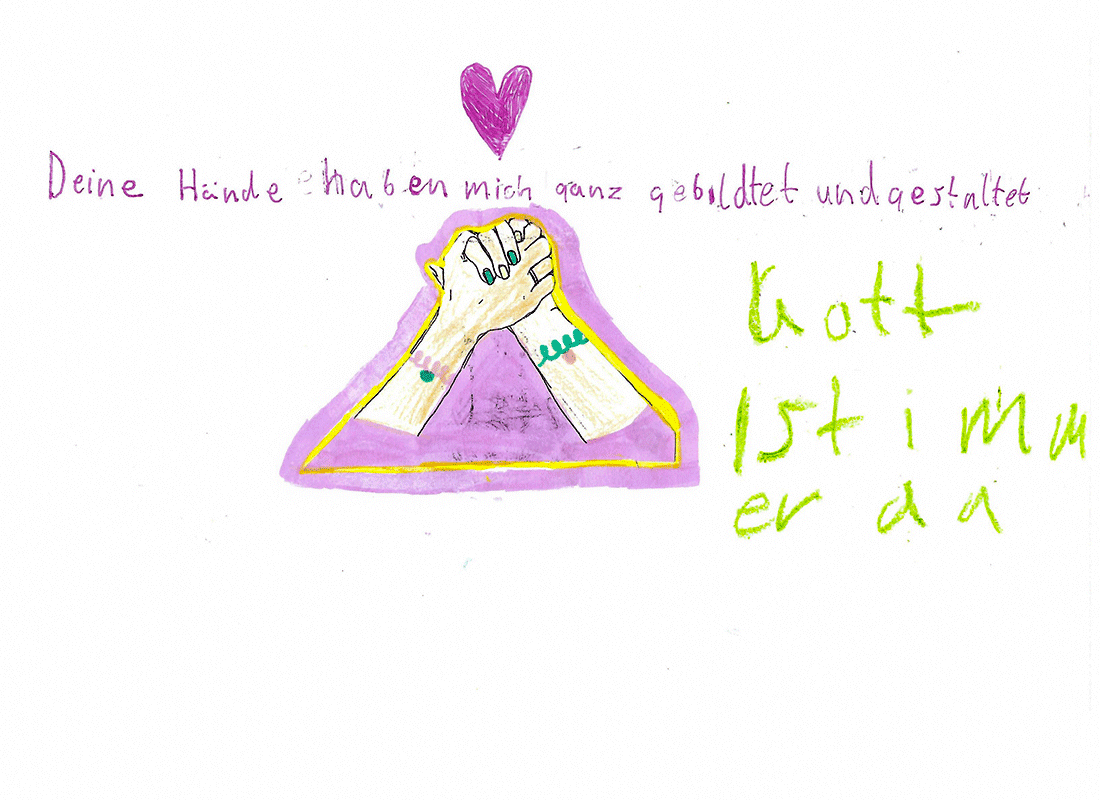 Deine Hände haben mich ganz gebildtet und gestaltet
Gott
Ist imm
er da